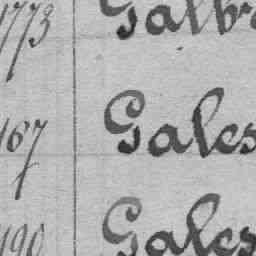 1773 Galbr
167 Gales
190 Gales